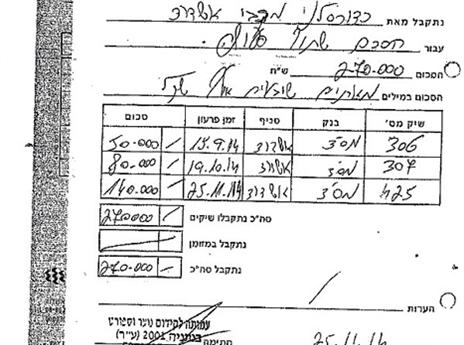 נתקבל מאת כדורסלני מכבי אשדוד
עבור הסכם שתוף פעולה
הסכום 270.000 ש"ח
הסכום במילים מאתיים שבעים אלף שקל
שיק מס' בנק סניף זמן פרעון סכום
306 אשדוד 15.9.14 50.000
307 אשדוד 19.10.14 80.000
425 אשדוד 25.11.14 140.000
סה"כ נתקבלו שיקים 270000
נתקבל במזומן
נתקבל סה"כ 270.000
הערות
עמותה לקידום נוער וספורט
בנתניה 2001 (ע"ר)
25.11.14 חתימה